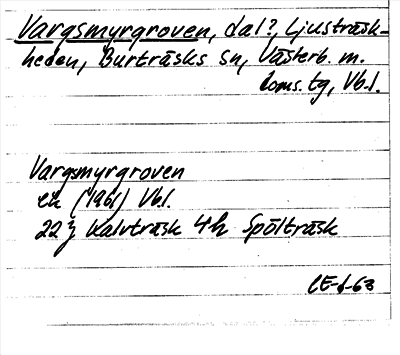 Vargsmyrgroven, dal?, Ljusträsk-
heden, Burträsks sn, Västerb. m.
doms. tg, Vb.l.
Vargsmyrgroven
ek (1961) Vb.l.
22J Kalvträsk 4h Spölträsk
CE-d-63